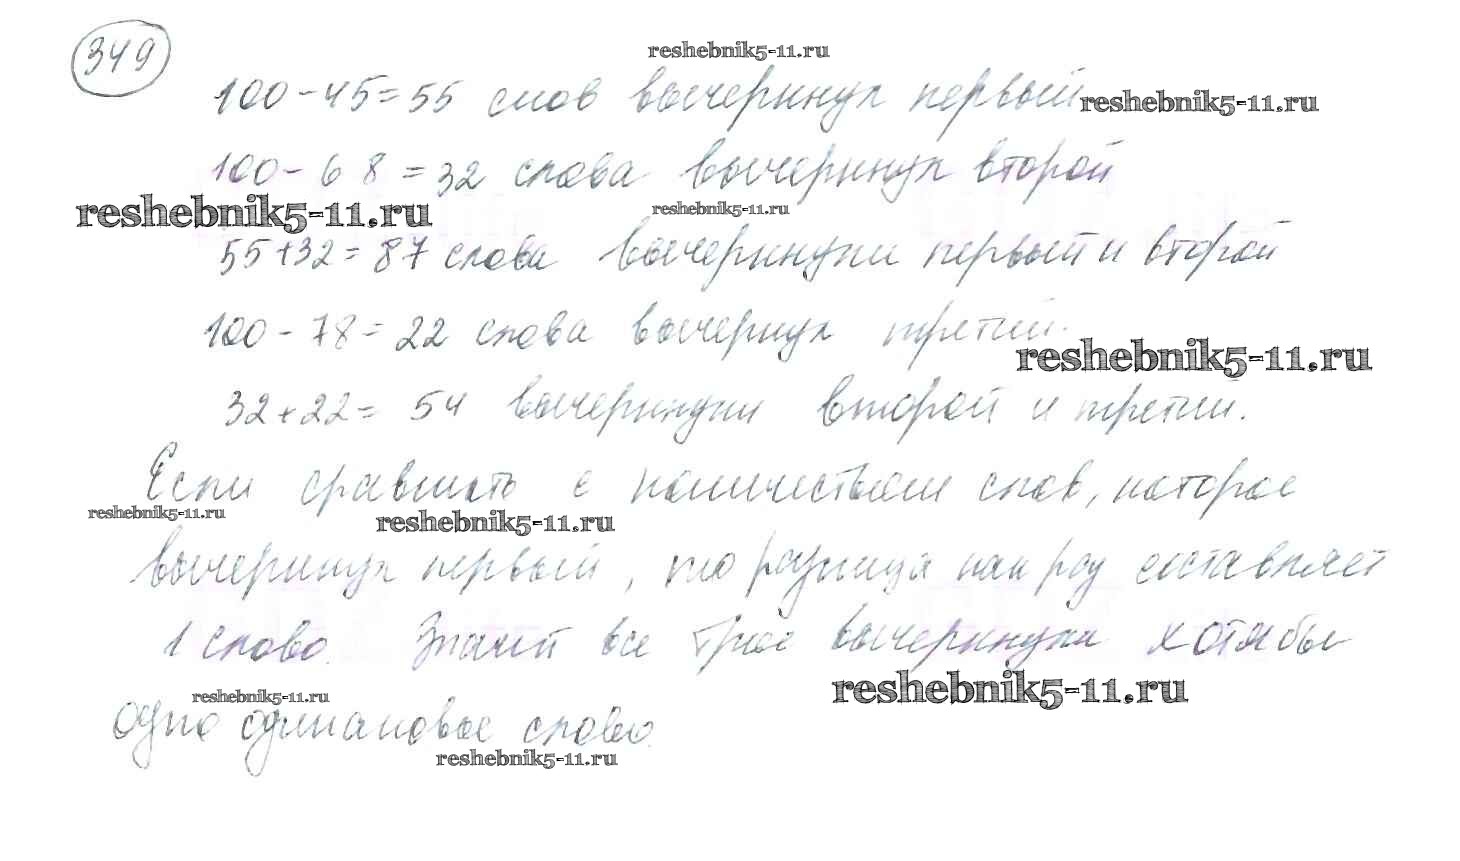 349
reshebnik5-11.ru
100 - 45 = 55 слов вычеркнул первый
reshebnik5-11.ru
100 - 68 = 32 слова вычеркнул второй
reshebnik5-11.ru
reshebnik5-11.ru
55 + 32 = 87 слова вычеркнули первый и второй
100 - 78 = 22 слова вычеркнул третий.
reshebnik5-11.ru
32 + 22 = 54 вычеркнули второй и третий.
Если сравнить с количеством слов, которое
reshebnik5-11.ru
reshebnik5-11.ru
вычеркнул первый, то разница как раз составляет
1 слово. Значит все трое вычеркнули хотя бы
reshebnik5-11.ru
reshebnik5-11.ru
одно одинаковое слово.
reshebnik5-11.ru